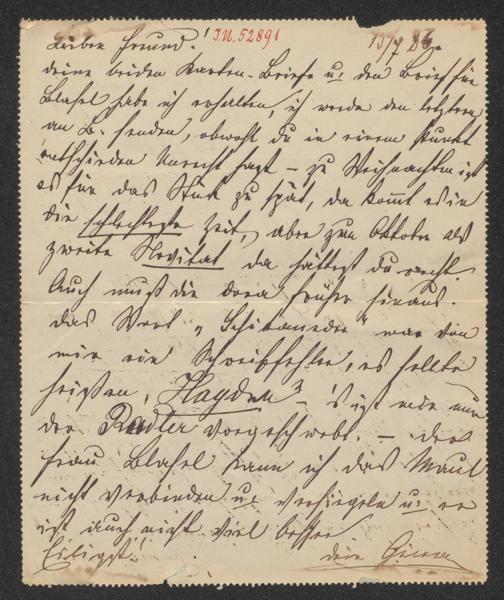 Lieber Freund! J.N. 52891 13/7 86.
deine beiden Karten-Briefe u: den Brief für
Blasel habe ich erhalten, ich werde den letztern
an B. senden, obwohl du in einem Punkt
entschieden Unrecht hast – zu Weihnachten ist
es für das Stück zu spät, da kommt es in
die schlechteste Zeit, aber zum Oktober als
zweite Novität da hättest du recht.
Auch muß die dann früher hinaus.
das Wort „Schikaneder" war von
mir ein Schreibfehler, es sollte
heißen, „Haydn" – 's ist mir nur
der Radler vorgeschwebt. – der
Frau Blasel kann ich das Maul
nicht verbinden u: versiegeln u: er
ist auch nicht viel besser
Eiligst! dein